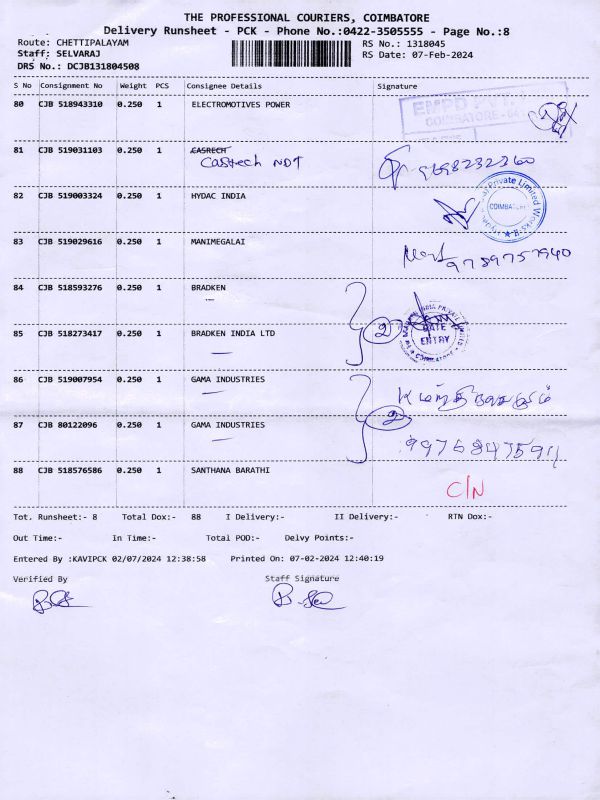 THE PROFESSIONAL COURIERS, COIMBATORE
Delivery Runsheet - PCK - Phone No.:0422-3505555 - Page No.:8
Route: CHETTIPALAYAM RS No.: 1318045
Staff: SELVARAJ RS Date: 07-Feb-2024
DRS No.: DCJB131804508
S No Consignment No Weight PCS Consignee Details Signature
80 CJB 518943310 0.250 1 ELECTROMOTIVES POWER
COIMBATORE
81 CJB 519031103 0.250 1 CASRECH
Castech NDT 9698232360
82 CJB 519003324 0.250 1 HYDAC INDIA
Private Limited Works
COIMBATORE
83 CJB 519029616 0.250 1 MANIMEGALAI
9789757940
84 CJB 518593276 0.250 1 BRADKEN
2
DATE
ENTRY
85 CJB 518273417 0.250 1 BRADKEN INDIA LTD
86 CJB 519007954 0.250 1 GAMA INDUSTRIES
2
87 CJB 80122096 0.250 1 GAMA INDUSTRIES
88 CJB 518576586 0.250 1 SANTHANA BARATHI
C/N
Tot. Runsheet:- 8 Total Dox:- 88 I Delivery:- II Delivery:- RTN Dox:-
Out Time:- In Time:- Total POD:- Delvy Points:-
Entered By :KAVIPCK 02/07/2024 12:38:58 Printed On: 07-02-2024 12:40:19
Verified By Staff Signature